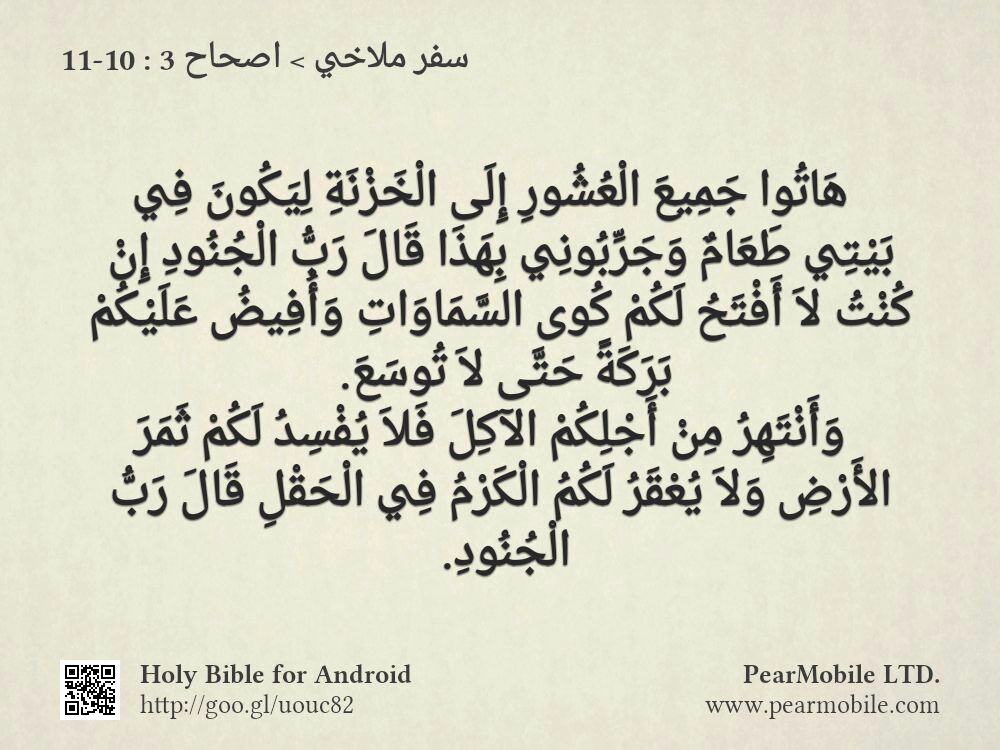 سفر ملاخي > اصحاح 3 : 10-11
هَاتُوا جَمِيعَ الْعُشُورِ إِلَى الْخَزْنَةِ لِيَكُونَ فِي
بَيْتِي طَعَامٌ وَجَرِّبُونِي بِهَذَا قَالَ رَبُّ الْجُنُودِ إِنْ
كُنْتُ لاَ أَفْتَحُ لَكُمْ كُوى السَّمَاوَاتِ وَأُفِيضُ عَلَيْكُمْ
بَرَكَةً حَتَّى لاَ تُوسَعَ.
وَأَنْتَهِرُ مِنْ أَجْلِكُمْ الآكِلَ فَلاَ يُفْسِدُ لَكُمْ ثَمَرَ
الأَرْضِ وَلاَ يُعْقَرُ لَكُمُ الْكَرْمُ فِي الْحَقْلِ قَالَ رَبُّ
الْجُنُودِ.
Holy Bible for Android
http://goo.gl/uouc82
PearMobile LTD.
www.pearmobile.com